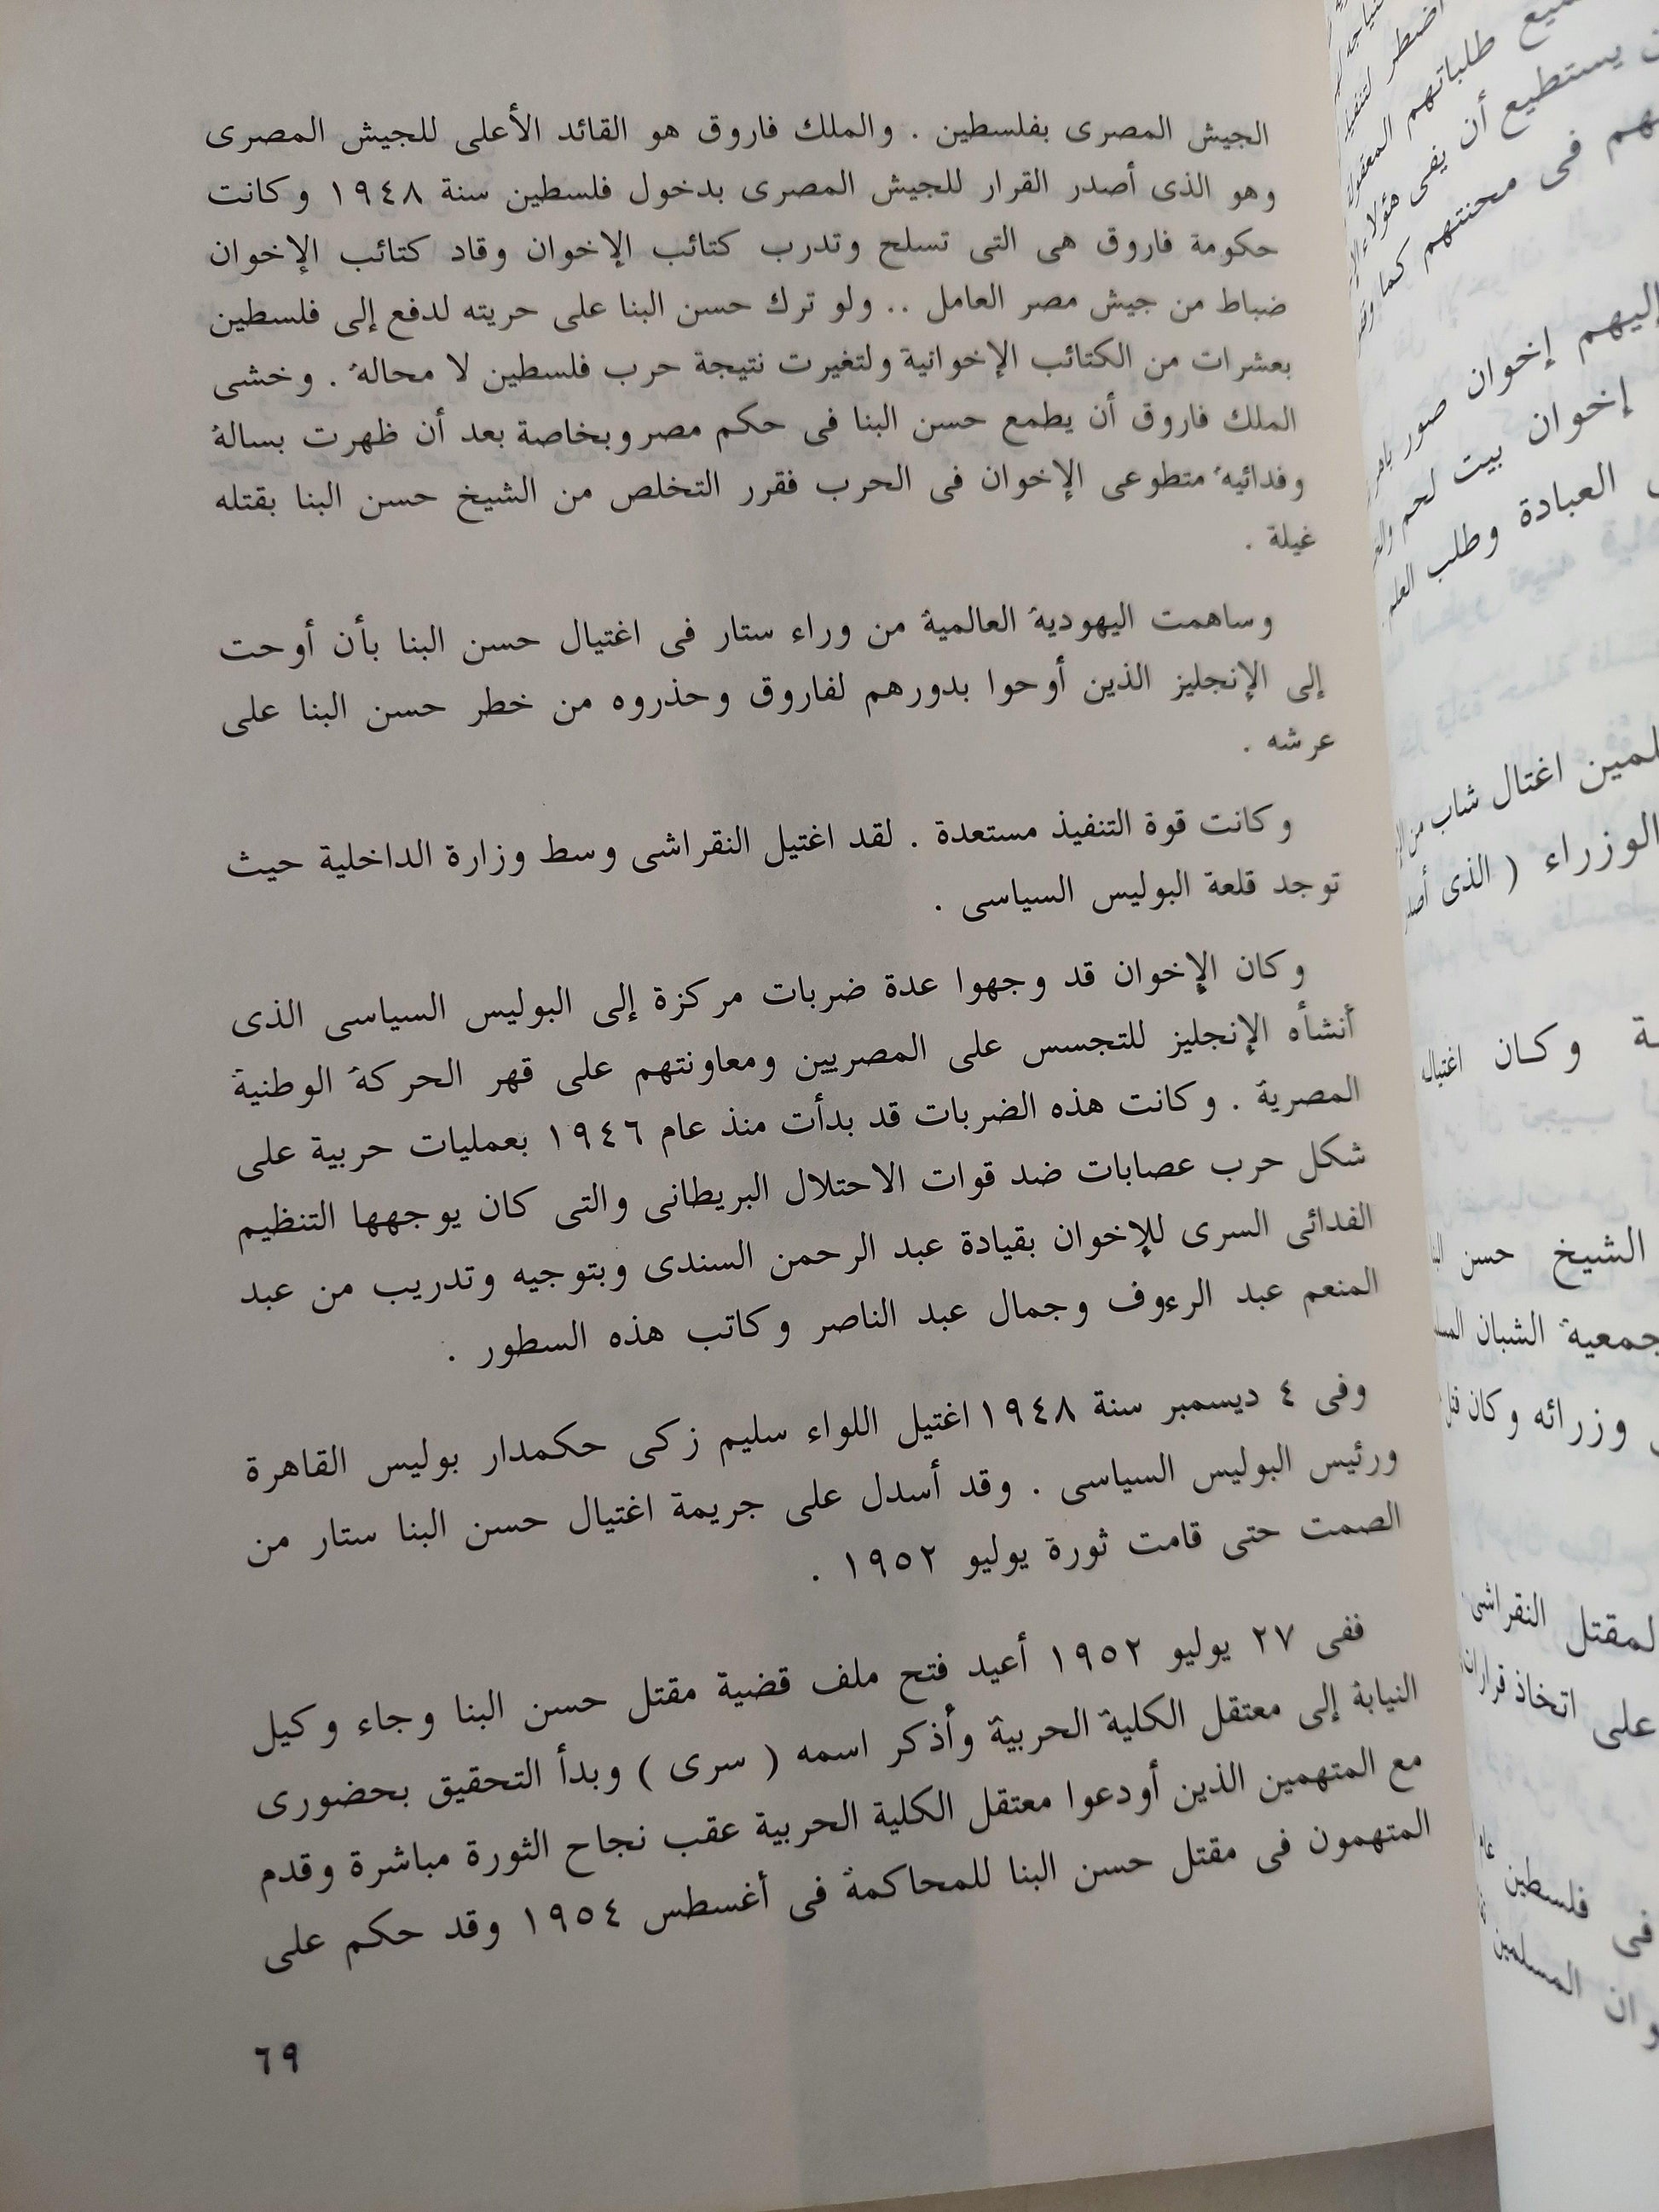 الجيش المصرى بفلسطين . والملك فاروق هو القائد الأعلى للجيش المصرى
وهو الذى أصدر القرار للجيش المصرى بدخول فلسطين سنة ١٩٤٨ وكانت
حكومة فاروق هى التى تسلح وتدرب كتائب الإخوان وقاد كتائب الإخوان
ضباط من جيش مصر العامل .. ولو ترك حسن البنا على حريته لدفع إلى فلسطين
بعشرات من الكتائب الإخوانية ولتغيرت نتيجة حرب فلسطين لا محالة . وخشى
الملك فاروق أن يطمع حسن البنا فى حكم مصر وبخاصة بعد أن ظهرت بسالة
وفدائية متطوعى الإخوان فى الحرب فقرر التخلص من الشيخ حسن البنا بقتله
غيلة .
وساهمت اليهودية العالمية من وراء ستار فى اغتيال حسن البنا بأن أوحت
إلى الإنجليز الذين أوحوا بدورهم لفاروق وحذروه من خطر حسن البنا على
عرشه .
وكانت قوة التنفيذ مستعدة . لقد اغتيل النقراشى وسط وزارة الداخلية حيث
توجد قلعة البوليس السياسى .
وكان الإخوان قد وجهوا عدة ضربات مركزة إلى البوليس السياسى الذى
أنشأه الإنجليز للتجسس على المصريين ومعاونتهم على قهر الحركة الوطنية
المصرية . وكانت هذه الضربات قد بدأت منذ عام ١٩٤٦ بعمليات حربية على
شكل حرب عصابات ضد قوات الاحتلال البريطانى والتى كان يوجهها التنظيم
الفدائى السرى للإخوان بقيادة عبد الرحمن السندى وبتوجيه وتدريب من عبد
المنعم عبد الرءوف وجمال عبد الناصر وكاتب هذه السطور .
وفى ٤ ديسمبر سنة ١٩٤٨ اغتيل اللواء سليم زكى حكمدار بوليس القاهرة
ورئيس البوليس السياسى . وقد أسدل على جريمة اغتيال حسن البنا ستار من
الصمت حتى قامت ثورة يوليو ١٩٥٢ .
ففى ٢٧ يوليو ١٩٥٢ أعيد فتح ملف قضية مقتل حسن البنا وجاء وكيل
النيابة إلى معتقل الكلية الحربية وأذكر اسمه ( سرى ) وبدأ التحقيق بحضورى
مع المتهمين الذين أودعوا معتقل الكلية الحربية عقب نجاح الثورة مباشرة وقدم
المتهمون فى مقتل حسن البنا للمحاكمة فى أغسطس ١٩٥٤ وقد حكم على
٦٩
طلباتهم المعقولة
يستطيع أن يفى هؤلاء
فى محنتهم كما
إليهم إخوان صور باهر
إخوان بيت لحم
العبادة وطلب العلم
اغتال شاب من
الوزراء ( الذى
وكان اغتيال
الشيخ حسن
جمعية الشبان
وزرائه وكان
لمقتل النقراشى
على اتخاذ
فى فلسطين
المسلمين